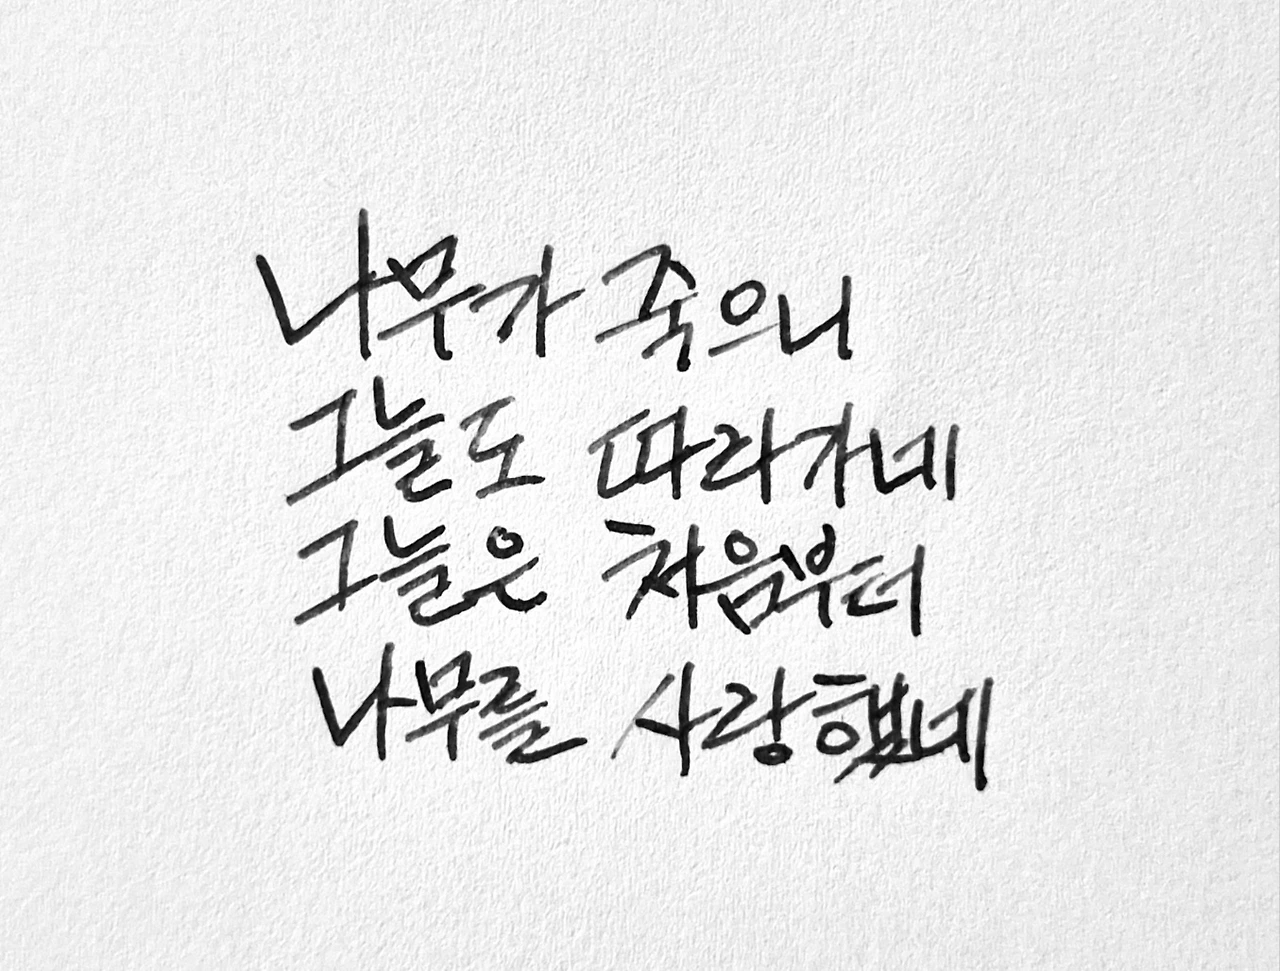 나무가 죽으니
그늘도 따라가네
그늘은 처음부터
나무를 사랑했네